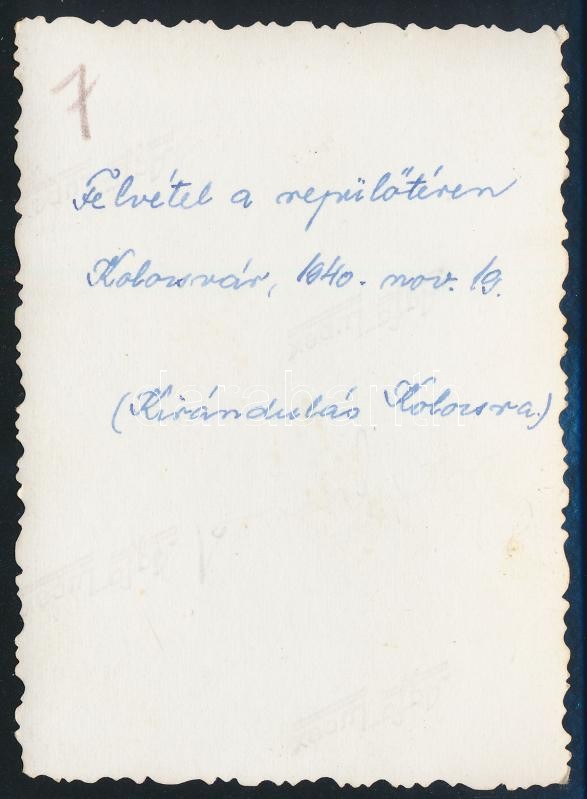 7
Felvétel a repülőtéren
Kolozsvár, 1940. nov. 19.
(Kirándulás Kolozsra.)